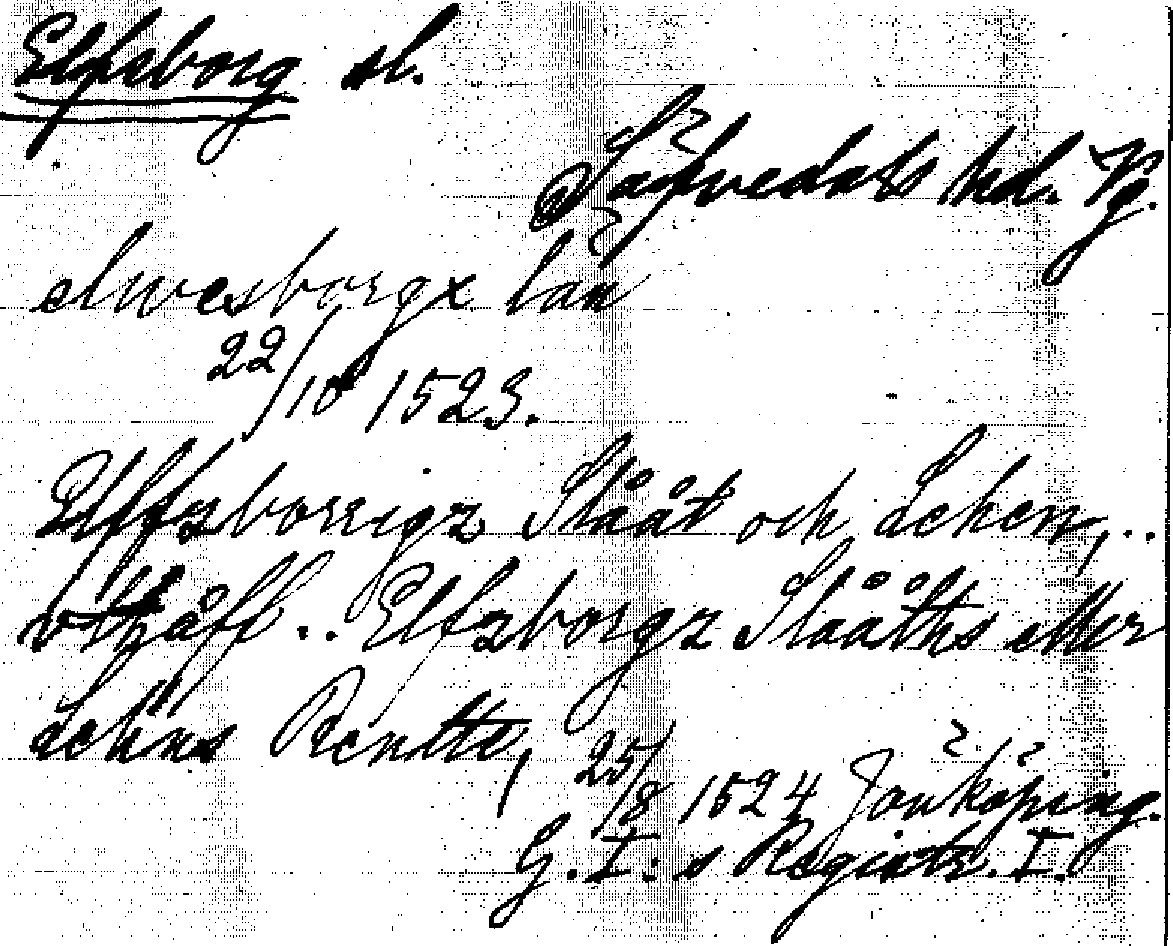 Elfsborg sl.
Säfvedals hd. Vg.
elwesborgx län
22/10 1523.
Elffzborrigz Slååt och Lehen,..
vthåff.. Elfzborgz Slååths eller
Lehns Rentte,
25/8 1524 Jönköping.
G. I:s Registr. I.